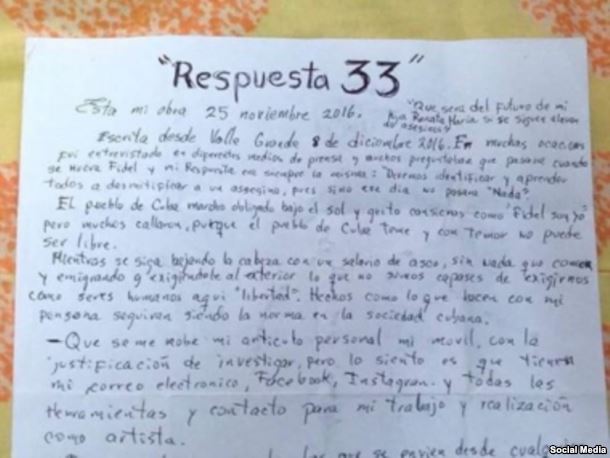 "Respuesta 33"
Esta mi obra 25 noviembre 2016.
"Que sera del futuro de mi
hija Renata María si se siguen
asesinos"
Escrita desde Valle Grande 8 de diciembre 2016. En muchas ocaciones
fui entrevistado en diferentes medios de prensa y muchos preguntaban que pasaria cuando
se muera Fidel y mi Respuesta era siempre la misma: Devemos identificar y aprender
todos a desmitificar a un asesino, pues sino ese dia no pasara "Nada".
El pueblo de Cuba marcho obligado bajo el sol y grito consignas como "Fidel soy yo"
pero muchos callaron, porque el pueblo de Cuba teme y con temor no puede
ser libre.
Mientras se siga bajando la cabeza con un salario de asco, sin nada que comer
y emigrando y exigiendole al exterior lo que no somos capases de exigirnos
como seres humanos aqui "libertad". Hechos como lo que hacen con mi
persona seguiran siendo la norma en la sociedad cubana.
- Que se me robe mi articulo personal mi movil, con la
justificación de investigar, pero lo siento es que tienen
mi correo electronico, Facebook, Instagran. y todas las
Herramientas y contacto para mi trabajo y realización
como artista.
que se envien desde cualquier
Social Media